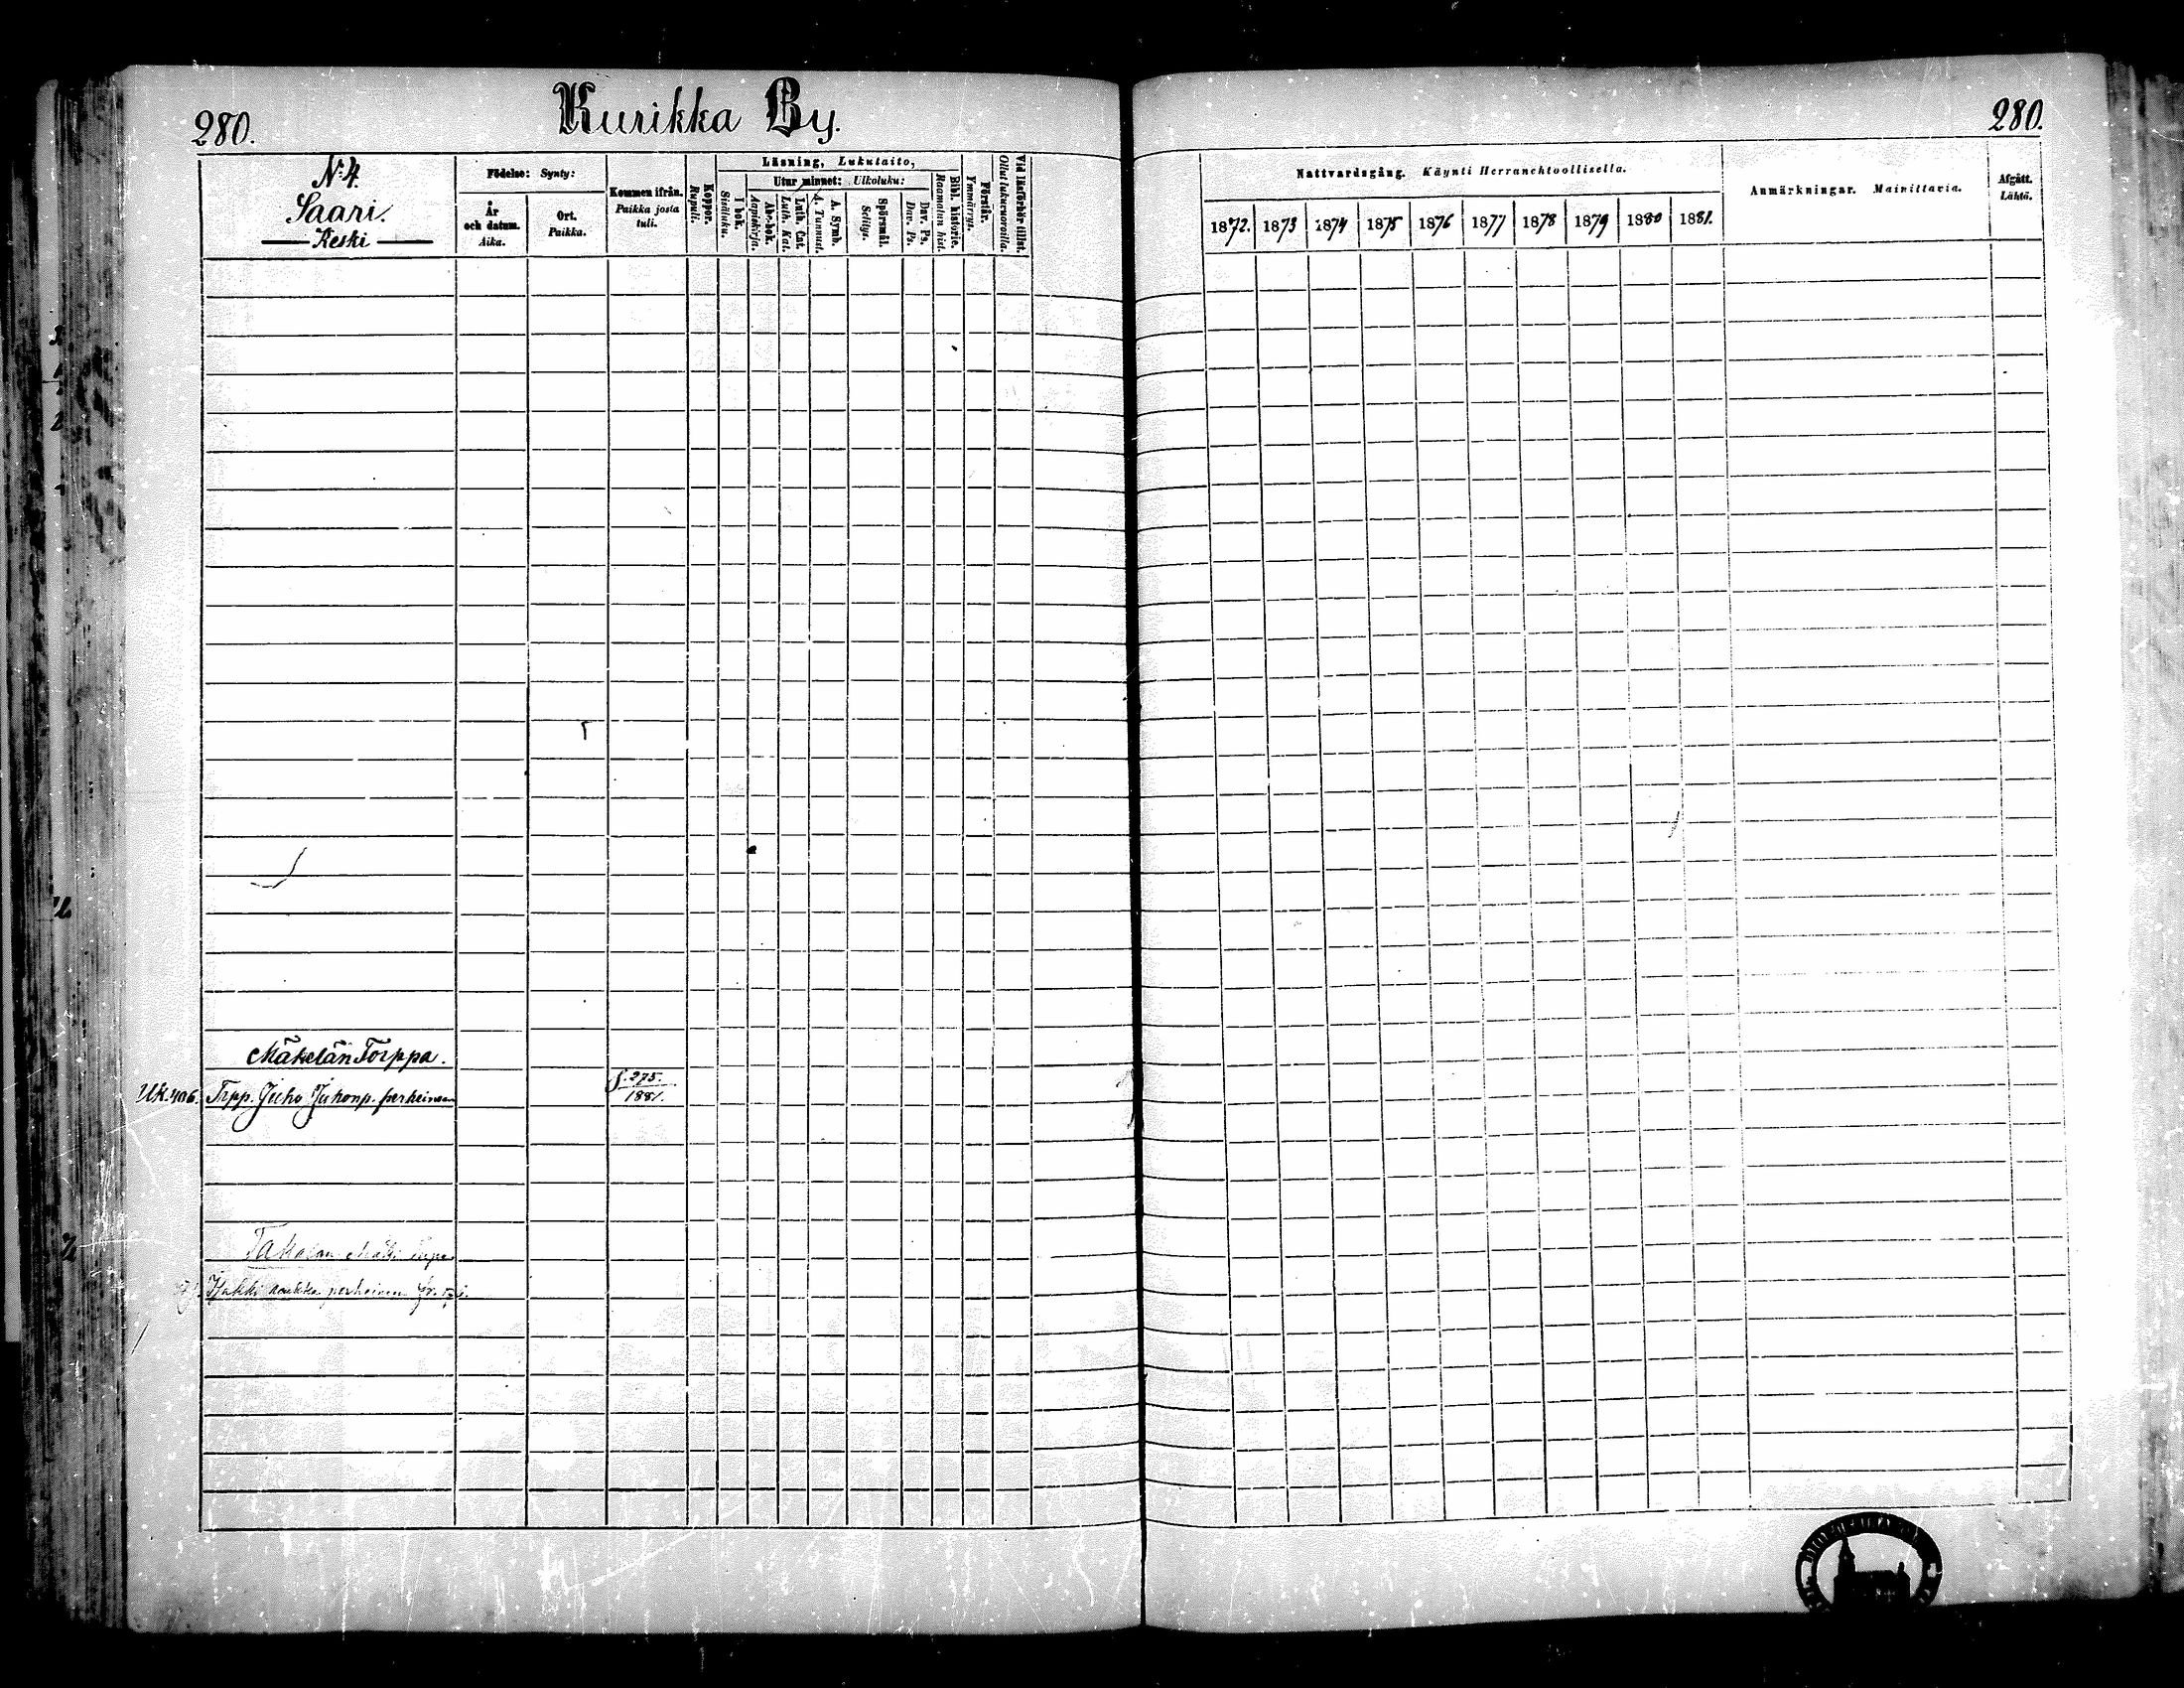 280.
Kurikka By.
280.
No 4.
Saari.
Keski
Födelse: Synty:
År
och datum.
Aika.
Ort.
Paikka.
Kommen ifrån.
Paikka josta
tuli.
Koppor.
Rupuli.
Läsning, Lukutaito,
I bok.
Sisäluku.
Utur minnet: Ulkoluku:
Abc-bok.
Aapiskirja.
Luth. Cat.
Luth. Kat.
A. Symb.
A. Tunnust.
Spörsmål.
Selitys.
Dav. Ps.
Dav. Ps.
Bibl. historie.
Raamatun hist.
Förstår.
Ymmärrys.
Vid läsförhör tillst.
Ollut lukuvuoroilla.
Nattvardsgång. Käynti Herranehtoollisella.
1872. 1873 1874 1875 1876 1877 1878 1879 1880 1881.
Anmärkningar. Mainittavia.
Afgått.
Lähtö.
Mäkelän Torppa.
S. 275.
1881.
Uk. 406. Trpp. Juho Juhonp. perheineen
Takalan
perheineen